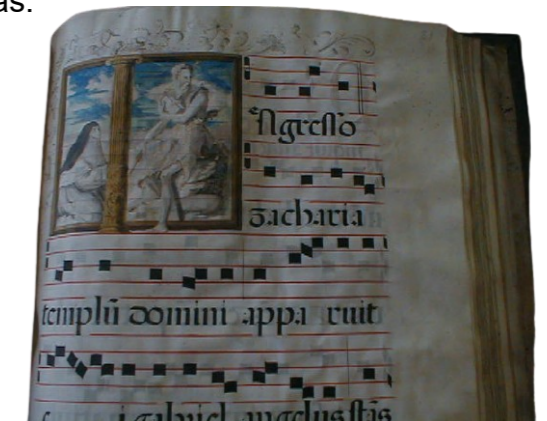 as.
Ngresso
zacharia
templū domini appa ruit
gabriel angelus stās